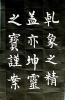 乹象之精
盖亦坤靈
之寶謹案